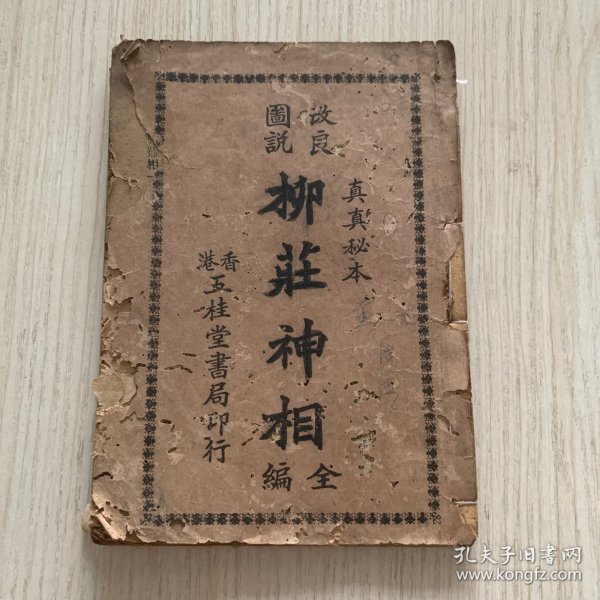 真真秘本
改良
圖説
柳莊神相
全編
香港
五桂堂書局印行
孔夫子旧书网
www.kongfz.com